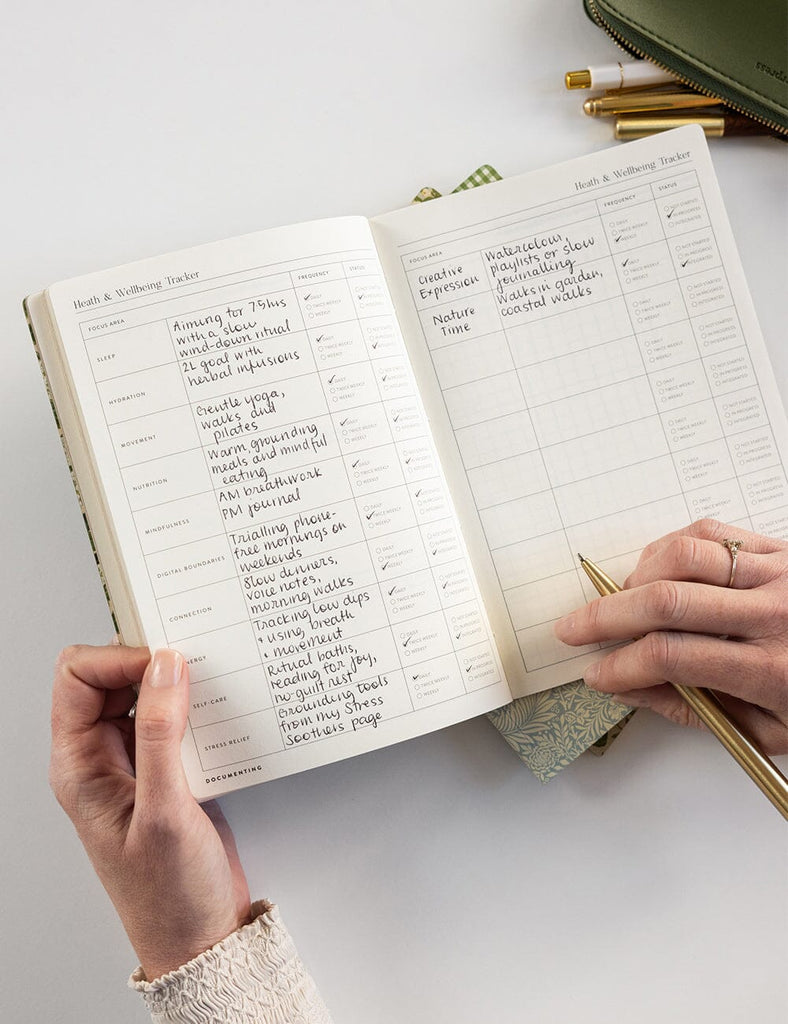 Heath & Wellbeing Tracker
FOCUS AREA
FREQUENCY
STATUS
SLEEP
Aiming for 7.5hrs
with a slow
wind-down ritual
DAILY
TWICE WEEKLY
WEEKLY
NOT STARTED
IN PROGRESS
INTEGRATED
HYDRATION
2L goal with
herbal infusions
DAILY
TWICE WEEKLY
WEEKLY
MOVEMENT
Gentle yoga,
walks and
pilates
DAILY
TWICE WEEKLY
WEEKLY
NUTRITION
Warm, grounding
meals and mindful
eating
DAILY
TWICE WEEKLY
WEEKLY
MINDFULNESS
AM breathwork
PM journal
DAILY
TWICE WEEKLY
WEEKLY
DIGITAL BOUNDARIES
Trialling phone-
free mornings on
weekends
DAILY
TWICE WEEKLY
WEEKLY
CONNECTION
Slow dinners,
voice notes,
morning walks
DAILY
TWICE WEEKLY
WEEKLY
NERGY
Tracking low dips
+ using, breath
+ movement
DAILY
TWICE WEEKLY
WEEKLY
SELF-CARE
Ritual baths,
reading for joy,
no-guilt rest
DAILY
TWICE WEEKLY
WEEKLY
STRESS RELIEF
Grounding tools
from my Stress
Soothers page
DAILY
TWICE WEEKLY
WEEKLY
NOT STARTED
IN PROGRESS
INTEGRATED
DOCUMENTING
Heath & Wellbeing Tracker
FOCUS AREA
FREQUENCY
STATUS
Creative
Expression
Watercolour,
playlists or slow
journalling
DAILY
TWICE WEEKLY
WEEKLY
NOT STARTED
IN PROGRESS
INTEGRATED
Nature
Time
Walks in garden,
coastal walks
DAILY
TWICE WEEKLY
WEEKLY
NOT STARTED
IN PROGRESS
INTEGRATED
DAILY
TWICE WEEKLY
WEEKLY
NOT STARTED
IN PROGRESS
INTEGRATED
DAILY
TWICE WEEKLY
WEEKLY
NOT STARTED
IN PROGRESS
INTEGRATED
DAILY
TWICE WEEKLY
WEEKLY
NOT STARTED
IN PROGRESS
INTEGRATED
DAILY
TWICE WEEKLY
WEEKLY
NOT STARTED
IN PROGRESS
INTEGRATED
DAILY
TWICE WEEKLY
WEEKLY
NOT STARTED
IN PROGRESS
INTEGRATED